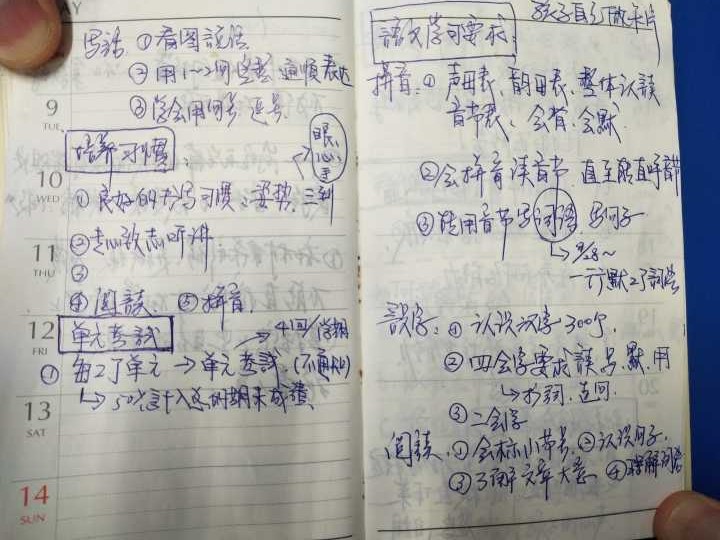 AY
写話 ①看图説话
②用1~2句完整 通順表达
③学会用问号 逗号
9
TUE
培养習慣:
眼、
手
10
WED
①良好的书写習慣:姿势、三到
②专心致志听讲
11
THU
③
④閲讀 ⑤拼音
12
FRI
单元考試
4回/学期
①每2丁单元→单元考試
↳50%計入总的期末成績
13
SAT
14
SUN
孩子自己做卡片
語文学习要求:
拼音:①声母表、韵母表、整体认讀
音节表、会背、会默
②会拼音读音节 直至能直呼音節
③使用音节写词語、写句子
↳9/28~
一行默2丁詞语
識字:①认识汉字300个.
②四会字要求讀、写、默、用
↳扩詞、造句
③二会字
閲讀、①会标小节号、②认识句子、
③了解文章大意 ④理解词语